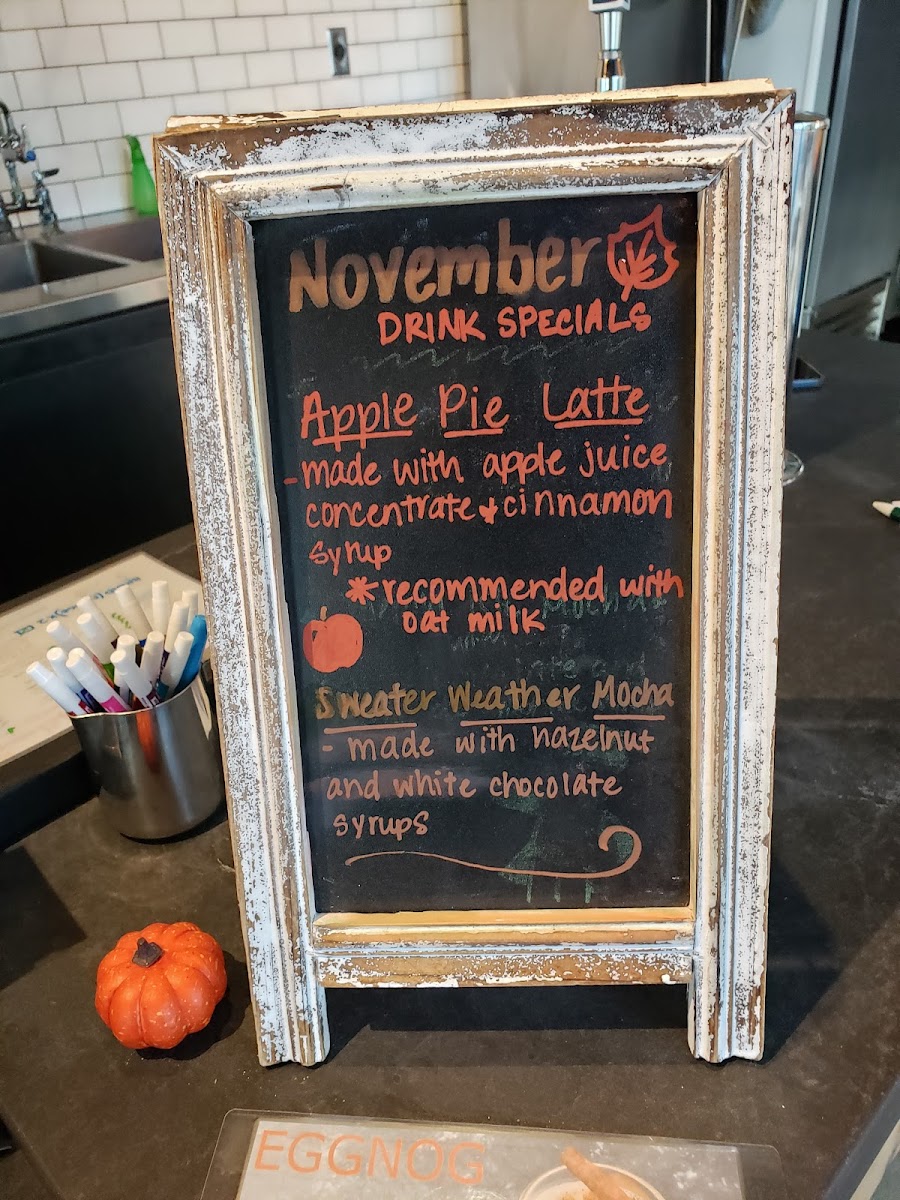 November
DRINK SPECIALS
Apple Pie Latte
-made with apple juice
concentrate & cinnamon
syrup
*recommended with
oat milk
Sweater Weather Mocha
- made with hazelnut
and white chocolate
syrups
EGGNOG